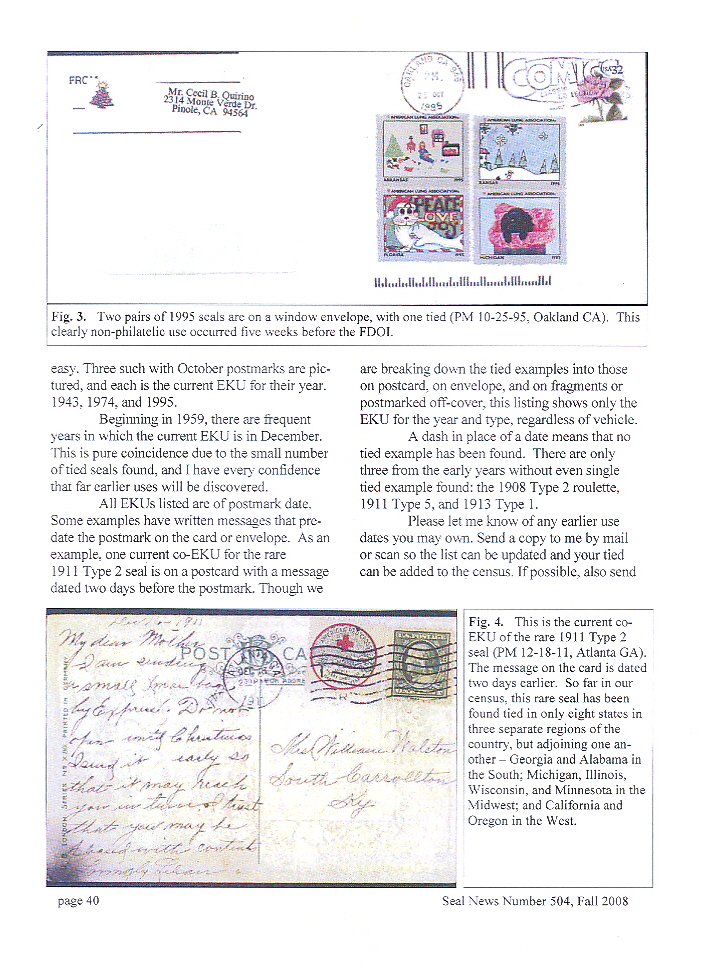 FRC
Mr. Cecil B. Quirino
2314 Monte Verde Dr.
Pinole, CA 94564
OAKLAND CA
1995
USA 32
AMERICAN LUNG ASSOCIATION
ARKANSAS 1995
AMERICAN LUNG ASSOCIATION
KANSAS 1995
AMERICAN LUNG ASSOCIATION
PEACE
LOVE
JOY
FLORIDA 1995
AMERICAN LUNG ASSOCIATION
MICHIGAN 1995
Fig. 3. Two pairs of 1995 seals are on a window envelope, with one tied (PM 10-25-95, Oakland CA). This
clearly non-philatelic use occurred five weeks before the FDOI.
easy. Three such with October postmarks are pic-
tured, and each is the current EKU for their year.
1943, 1974, and 1995.
Beginning in 1959, there are frequent
years in which the current EKU is in December.
This is pure coincidence due to the small number
of tied seals found, and I have every confidence
that far earlier uses will be discovered.
All EKUs listed are of postmark date.
Some examples have written messages that pre-
date the postmark on the card or envelope. As an
example, one current co-EKU for the rare
1911 Type 2 seal is on a postcard with a message
dated two days before the postmark. Though we
are breaking down the tied examples into those
on postcard, on envelope, and on fragments or
postmarked off-cover, this listing shows only the
EKU for the year and type, regardless of vehicle.
A dash in place of a date means that no
tied example has been found. There are only
three from the early years without even single
tied example found: the 1908 Type 2 roulette,
1911 Type 5, and 1913 Type 1.
Please let me know of any earlier use
dates you may own. Send a copy to me by mail
or scan so the list can be updated and your tied
can be added to the census. If possible, also send
My dear Mother
I am sending
a small
by Express. Do not
open until Christmas
Send it early so
that it may reach
you in time I trust
that you may be
pleased with content
POST CA
Mrs William Walston
South Carrollton
Ky
Fig. 4. This is the current co-
EKU of the rare 1911 Type 2
seal (PM 12-18-11, Atlanta GA).
The message on the card is dated
two days earlier. So far in our
census, this rare seal has been
found tied in only eight states in
three separate regions of the
country, but adjoining one an-
other – Georgia and Alabama in
the South; Michigan, Illinois,
Wisconsin, and Minnesota in the
Midwest; and California and
Oregon in the West.
page 40
Seal News Number 504, Fall 2008